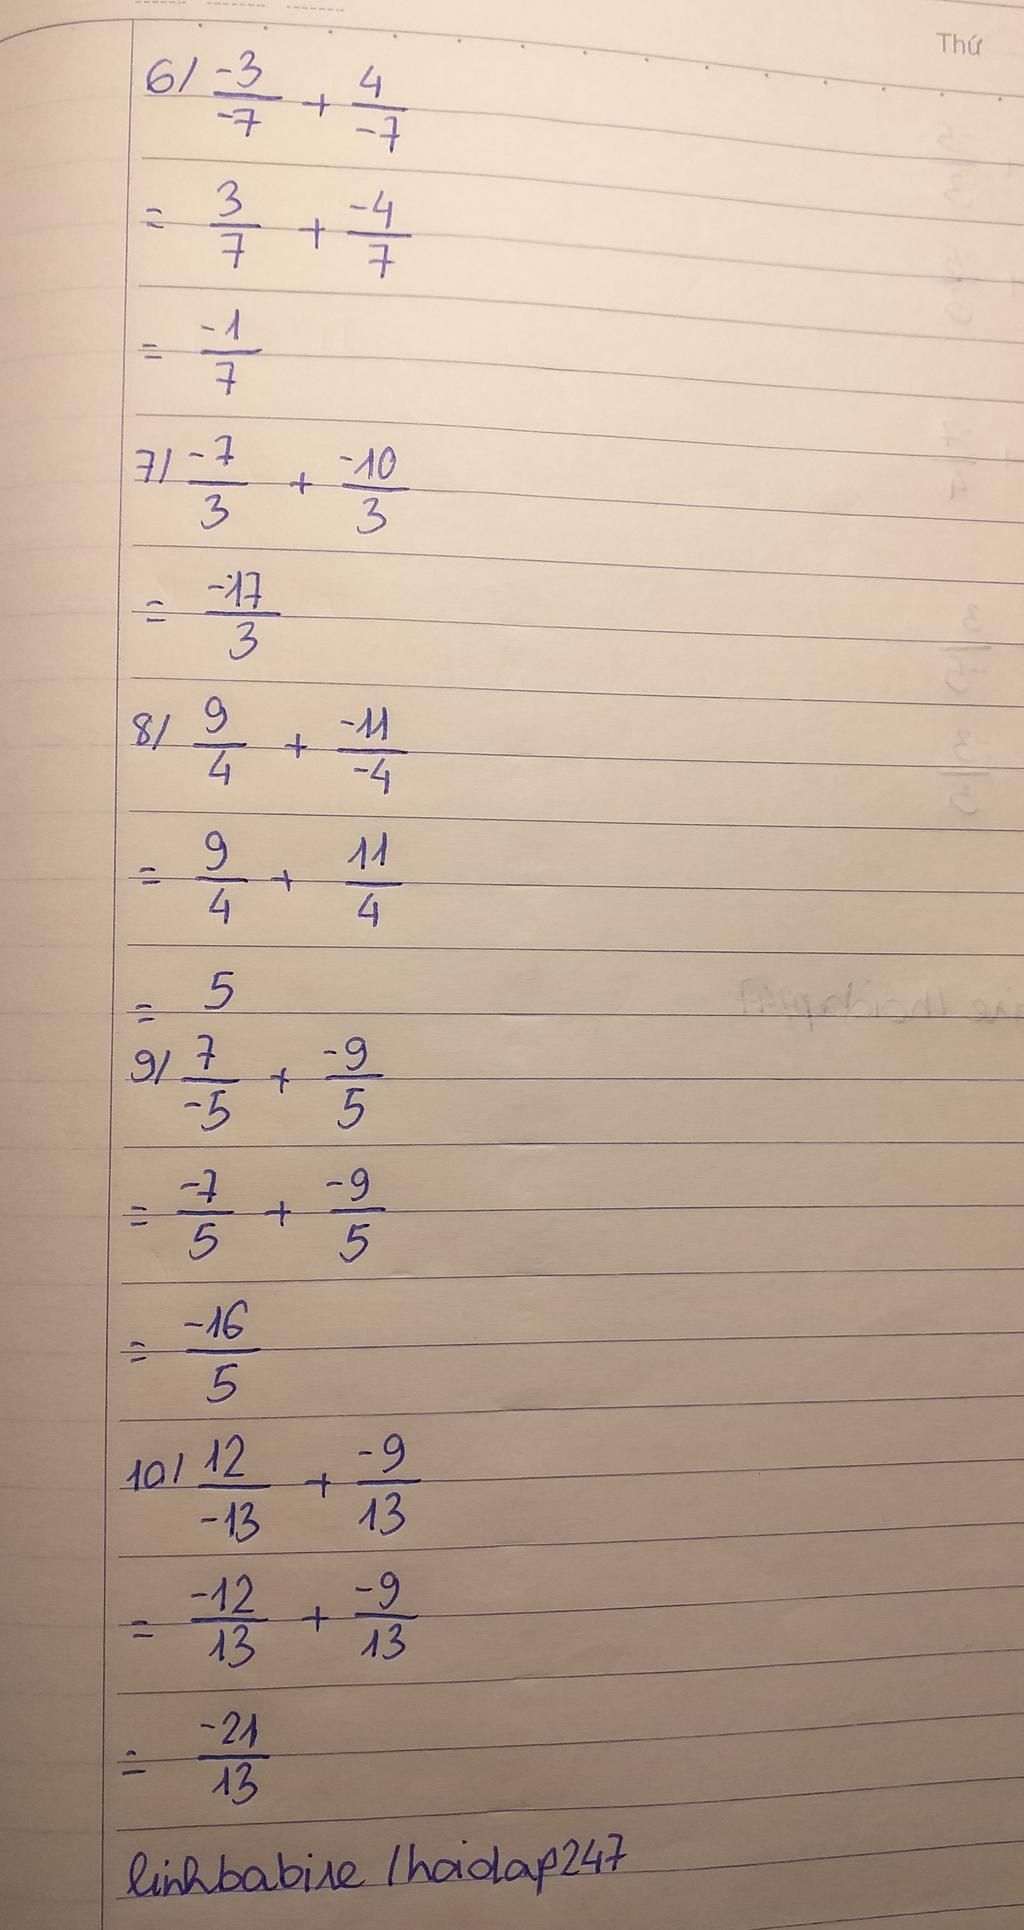 Thứ
6/ -3/-7 + 4/-7
= 3/7 + -4/7
= -1/7
7/ -7/3 + -10/3
= -17/3
8/ 9/4 + -11/-4
= 9/4 + 11/4
= 5
9/ 7/-5 + -9/5
= -7/5 + -9/5
= -16/5
10/ 12/-13 + -9/13
= -12/13 + -9/13
= -21/13
linhbabine /hoidap247